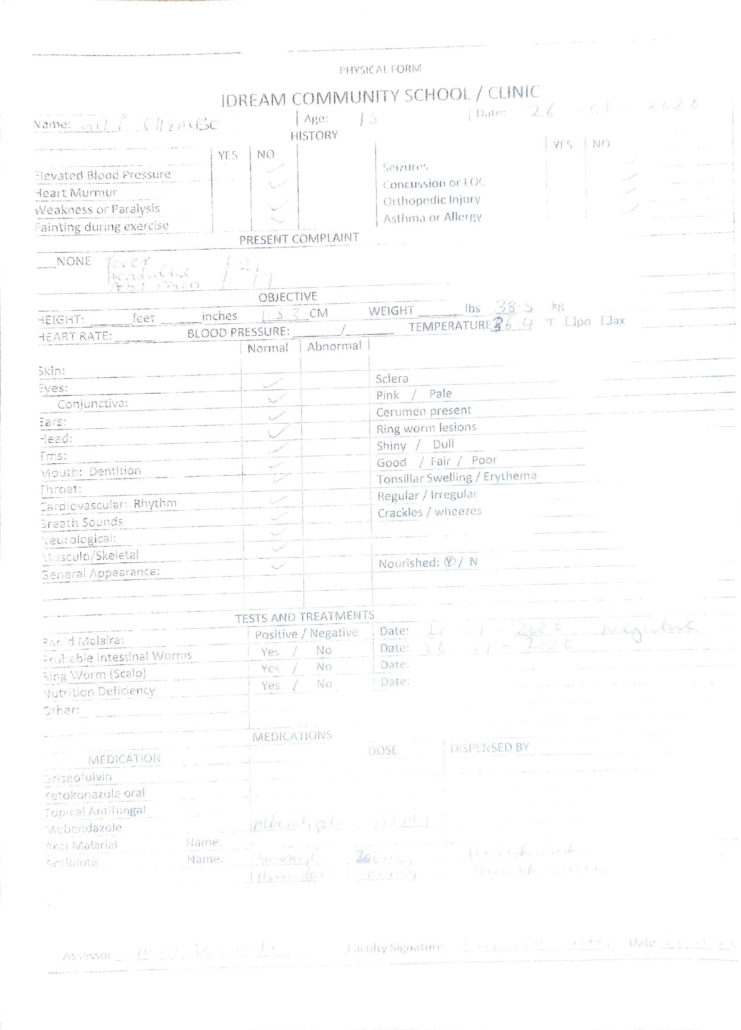 PHYSICAL FORM
IDREAM COMMUNITY SCHOOL / CLINIC
Name: Age: 15 Date: 26 - 01 - 2026
HISTORY
YES NO YES NO
Elevated Blood Pressure Seizures
Heart Murmur Concussion or LOC
Weakness or Paralysis Orthopedic Injury
Fainting during exercise Asthma or Allergy
PRESENT COMPLAINT
___NONE Fever
headache
OBJECTIVE
HEIGHT: ______feet ______inches CM WEIGHT ______ lbs 38.5 kg
HEART RATE: ______ BLOOD PRESSURE: ______/______ TEMPERATURE 36.4 °F □po □ax
Normal Abnormal
Skin:
Eyes: Sclera
Conjunctiva: Pink / Pale
Ears: Cerumen present
Head: Ring worm lesions
Tms: Shiny / Dull
Mouth: Dentition Good / Fair / Poor
Throat: Tonsillar Swelling / Erythema
Cardiovascular: Rhythm Regular / Irregular
Breath Sounds Crackles / wheezes
Neurological:
Musculo/Skeletal
General Appearance: Nourished: Y / N
TESTS AND TREATMENTS
Rapid Malaira: Positive / Negative Date: 2026 Negative
Probable Intestinal Worms Yes / No Date:
Ring Worm (Scalp) Yes / No Date:
Nutrition Deficiency Yes / No Date:
Other:
MEDICATIONS
MEDICATION DOSE DISPENSED BY
Griseofulvin
Ketokonazole oral
Topical Antifungal
Mebendazole
Anti Malarial Name:
Antibiotic Name:
Assessor Faculty Signature Date